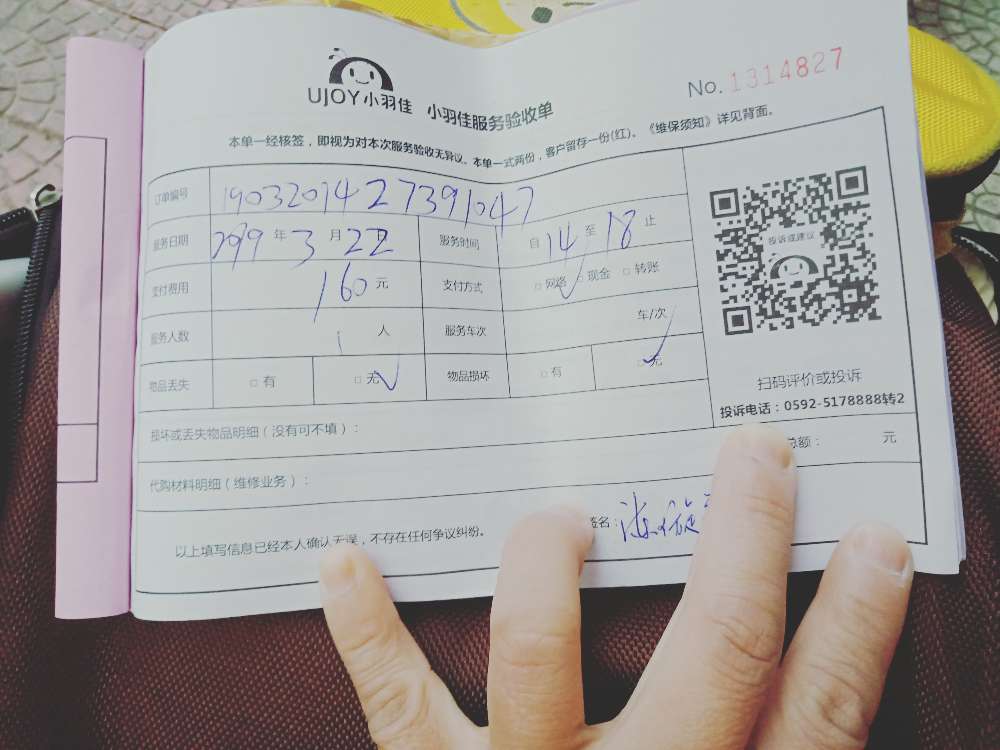 UJOY小羽佳 小羽佳服务验收单
No. 1314827
本单一经核签,即视为对本次服务验收无异议。本单一式两份,客户留存一份(红)。《维保须知》详见背面。
订单编号 19032014 27391047
服务日期 2019 年 3 月 22 日 服务时间 自 14 至 18 止
支付费用 160 元 支付方式 □ 网络 ✓ □ 现金 □ 转账
服务人数 1 人 服务车次 车/次
物品丢失 □ 有 □ 无 ✓ 物品损坏 □ 有 □ 无 ✓
投诉或建议
扫码评价或投诉
投诉电话:0592-5178888转2
损坏或丢失物品明细(没有可不填):
代购材料明细(维修业务): 总额: 元
以上填写信息已经本人确认无误,不存在任何争议纠纷。 签名: